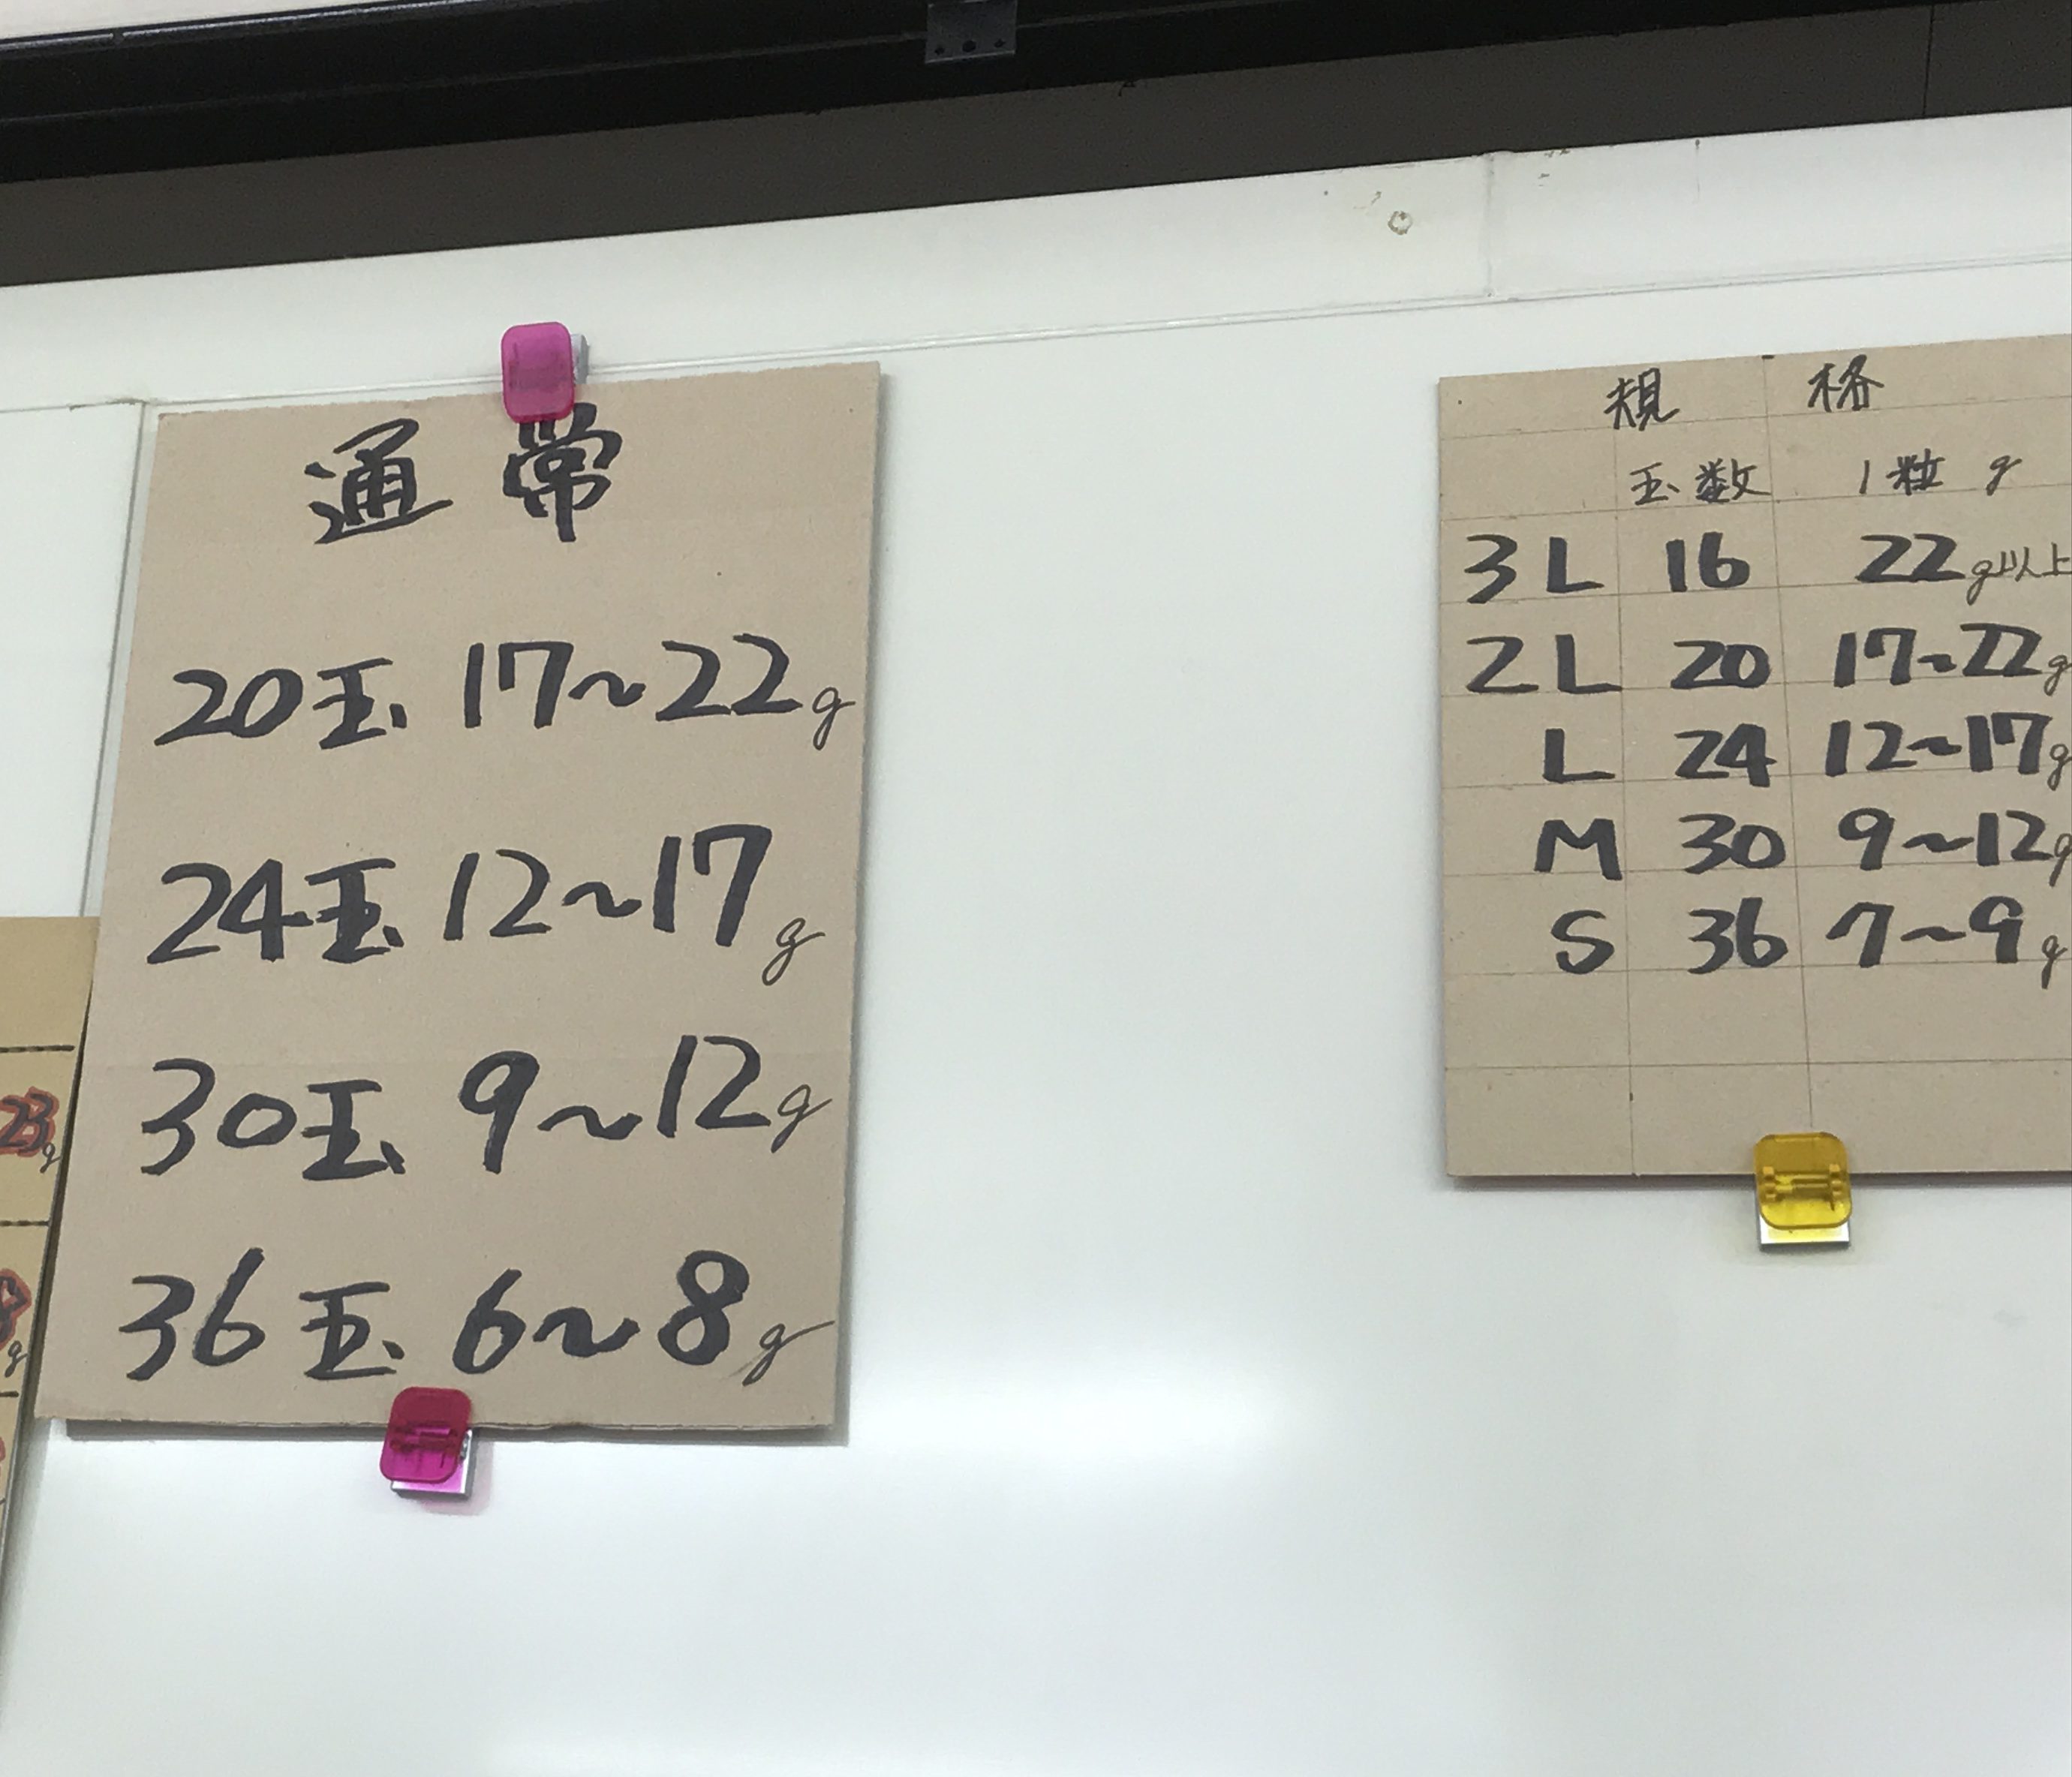 通常
20玉 17〜22g
24玉 12〜17g
30玉 9〜12g
36玉 6〜8g
規格
玉数 1粒 g
3L 16 22g以上
2L 20 17〜22g
L 24 12〜17g
M 30 9〜12g
S 36 7〜9g
23g
8g